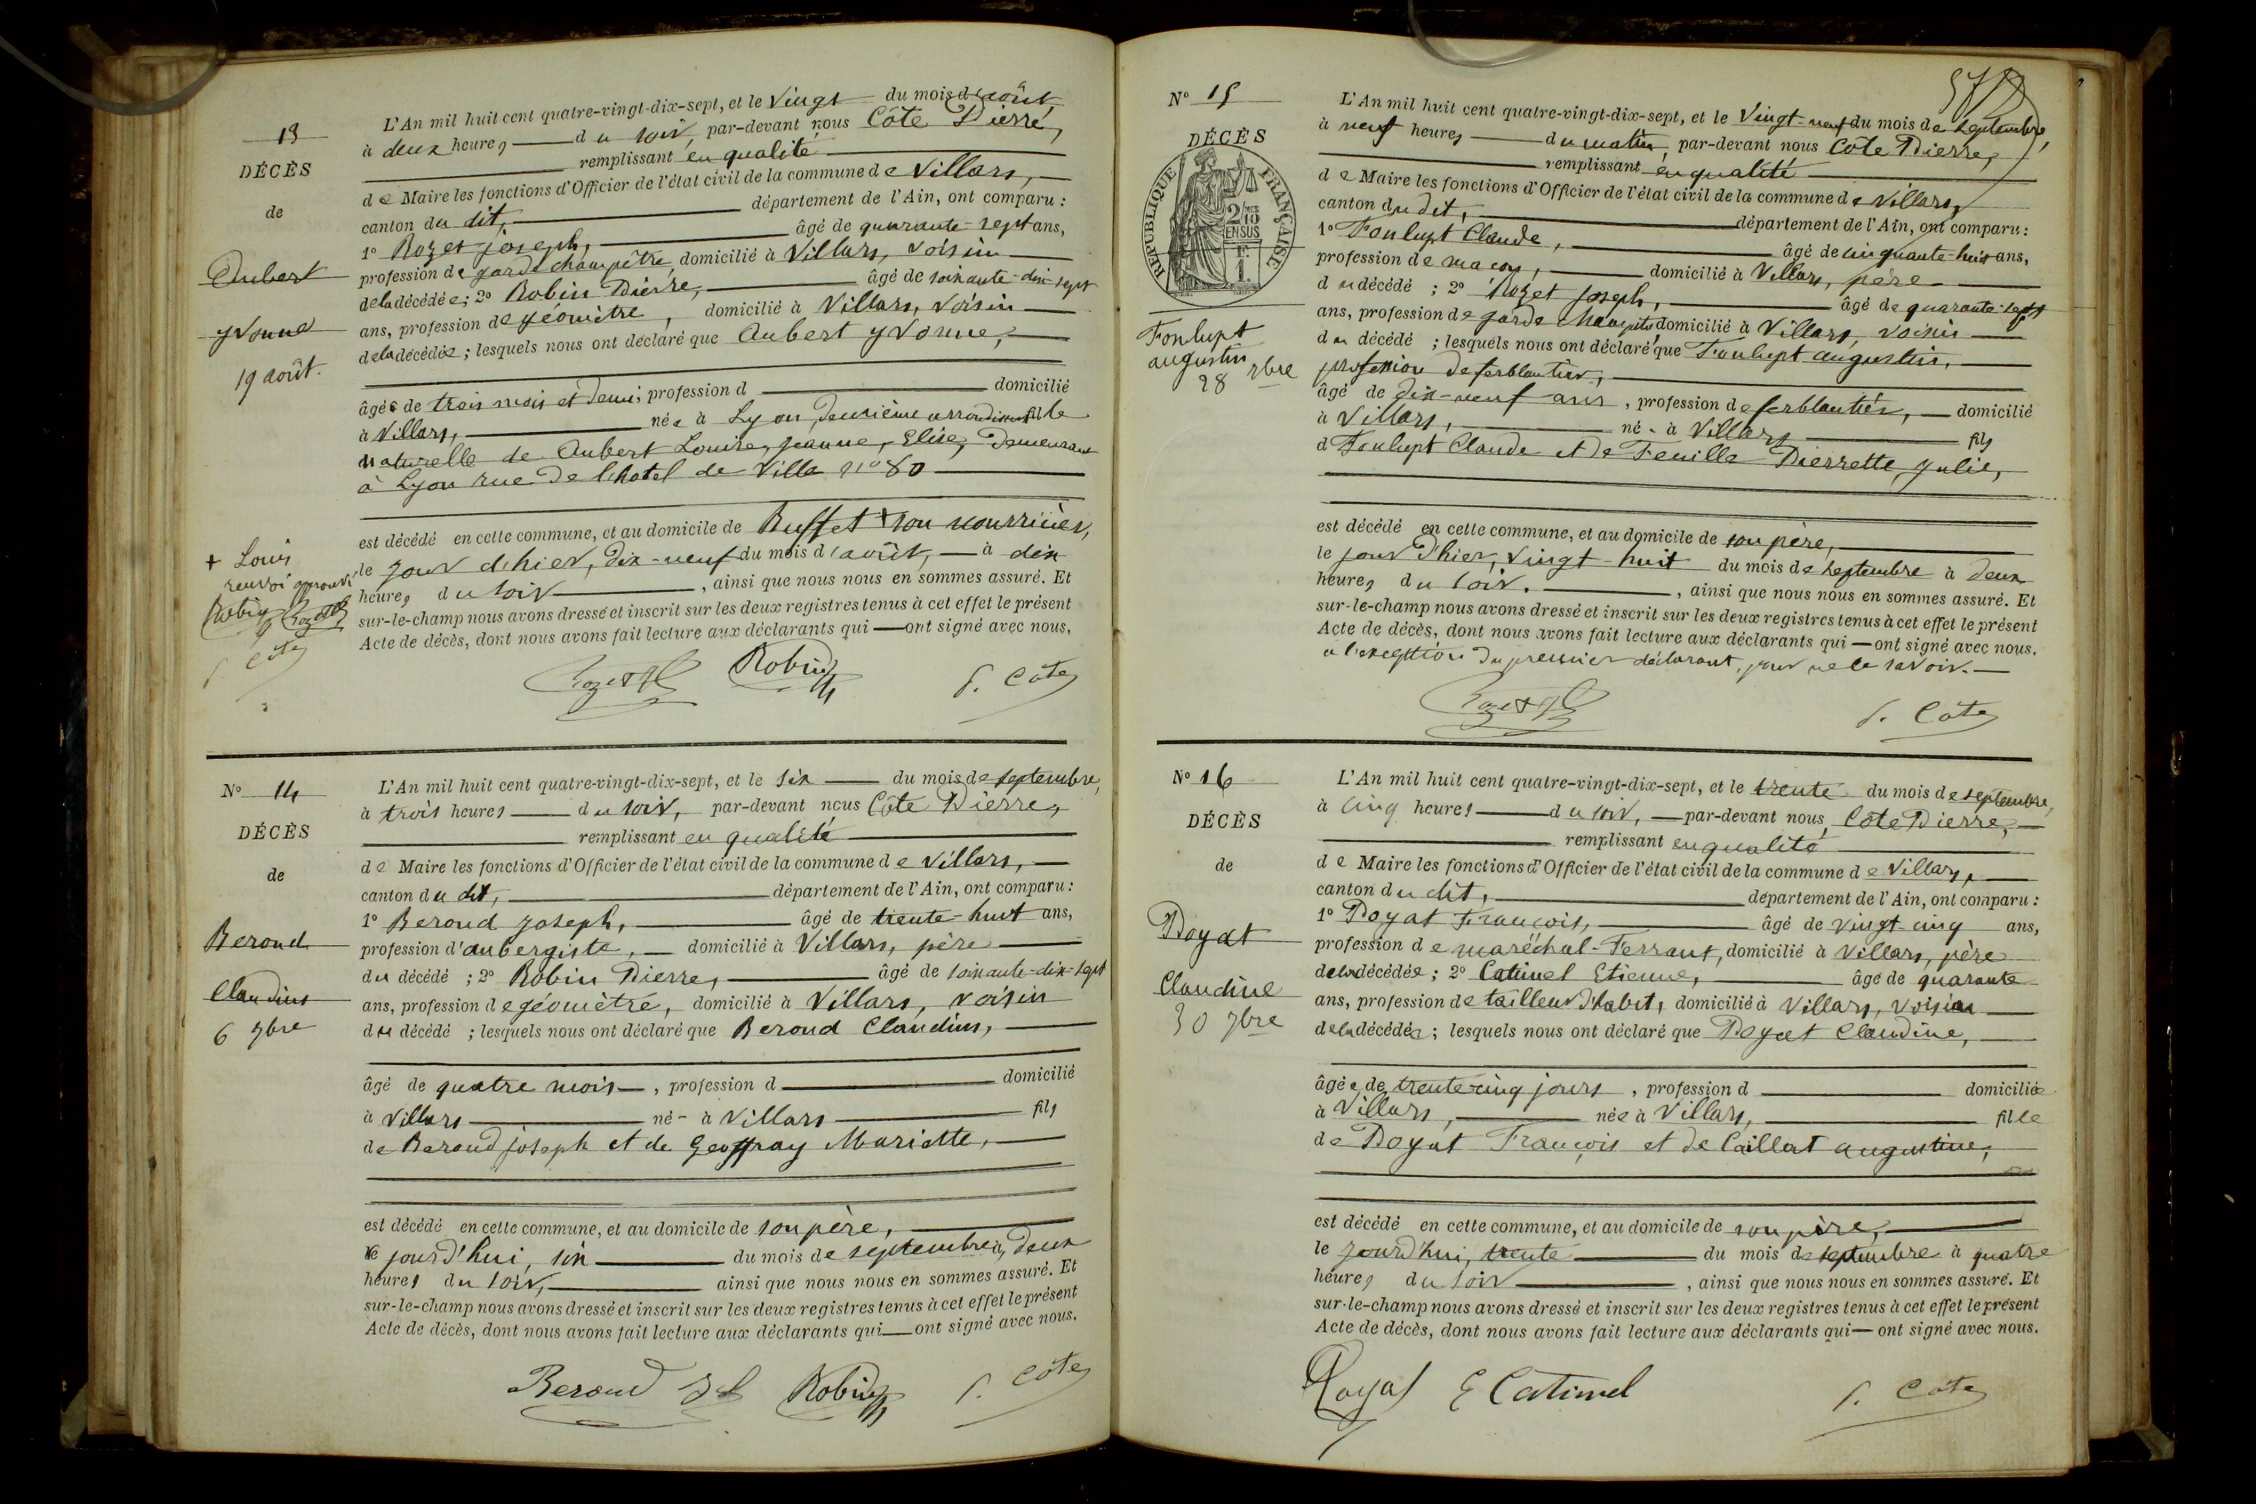 13
DÉCÈS
de
Aubert
yvonne
19 août.
L'An mil huit cent quatre-vingt-dix-sept, et le vingt du mois d'août
à deux heures du soir, par-devant nous Côte Pierre,
remplissant en qualité
de Maire les fonctions d'Officier de l'état civil de la commune de Villars,
canton du dit, département de l'Ain, ont comparu :
1° Rozet joseph, âgé de quarante-sept ans,
profession de garde champêtre, domicilié à Villars, voisin
de la décédée ; 2° Robin Pierre, âgé de soixante-dix-sept
ans, profession de géomètre, domicilié à Villars, voisin
de la décédée ; lesquels nous ont déclaré que Aubert yvonne,
âgée de trois mois et demi, profession d domicilié
à Villars, née à Lyon, deuxième arrondissmt fille
naturelle de Aubert Louise, jeanne, Elise, demeurant
à Lyon rue de l'hotel de Ville n° 80
est décédé en cette commune, et au domicile de Buffet + son nourricier,
le jour d'hier, dix-neuf du mois d'août, à dix
heures du soir, ainsi que nous nous en sommes assuré. Et
sur-le-champ nous avons dressé et inscrit sur les deux registres tenus à cet effet le présent
Acte de décès, dont nous avons fait lecture aux déclarants qui ont signé avec nous.
+ Louis
renvoi approuvé
Robin Rozet
P. Côte
Rozet Jh Robin P. Côte
N° 14
DÉCÈS
de
Beroud
Claudius
6 7bre
L'An mil huit cent quatre-vingt-dix-sept, et le six du mois de septembre,
à trois heures du soir, par-devant nous Côte Pierre,
remplissant en qualité
de Maire les fonctions d'Officier de l'état civil de la commune de Villars,
canton du dit, département de l'Ain, ont comparu :
1° Beroud Joseph, âgé de trente-huit ans,
profession d'aubergiste, domicilié à Villars, père
du décédé ; 2° Robin Pierre, âgé de soixante-dix-sept
ans, profession de géomètre, domicilié à Villars, voisin
du décédé ; lesquels nous ont déclaré que Beroud Claudius,
âgé de quatre mois, profession d domicilié
à Villars né à Villars fils
de Beroud joseph et de Geoffray Mariette,
est décédé en cette commune, et au domicile de son père,
ce jourd'hui, six du mois de septembre à deux
heures du soir, ainsi que nous nous en sommes assuré. Et
sur-le-champ nous avons dressé et inscrit sur les deux registres tenus à cet effet le présent
Acte de décès, dont nous avons fait lecture aux déclarants qui ont signé avec nous.
Beroud Jh Robin P. Côte
N° 15
DÉCÈS
RÉPUBLIQUE FRANÇAISE
2/10 EN SUS
F. 1.
Foulupt
augustin
28 7bre
L'An mil huit cent quatre-vingt-dix-sept, et le vingt-neuf du mois de septembre,
à neuf heures du matin, par-devant nous Côte Pierre,
remplissant en qualité
de Maire les fonctions d'Officier de l'état civil de la commune de Villars,
canton du dit, département de l'Ain, ont comparu :
1° Foulupt Claude, âgé de cinquante-huit ans,
profession de maçon, domicilié à Villars, père
du décédé ; 2° Rozet Joseph, âgé de quarante-sept
ans, profession de garde champêtre, domicilié à Villars, voisin
du décédé ; lesquels nous ont déclaré que Foulupt augustin,
profession de ferblantier,
âgé de dix-neuf ans, profession de ferblantier, domicilié
à Villars, né à Villars fils
d Foulupt Claude et de Feuille Pierrette Julie,
est décédé en cette commune, et au domicile de son père,
le jour d'hier, vingt-huit du mois de septembre à deux
heures du soir, ainsi que nous nous en sommes assuré. Et
sur-le-champ nous avons dressé et inscrit sur les deux registres tenus à cet effet le présent
Acte de décès, dont nous avons fait lecture aux déclarants qui ont signé avec nous.
à l'exception du premier déclarant, pour ne le savoir.
Rozet Jh P. Côte
N° 16
DÉCÈS
de
Doyat
Claudine
30 7bre
L'An mil huit cent quatre-vingt-dix-sept, et le trente du mois de septembre,
à cinq heures du soir, par-devant nous Côte Pierre,
remplissant en qualité
de Maire les fonctions d'Officier de l'état civil de la commune de Villars,
canton du dit, département de l'Ain, ont comparu :
1° Doyat François, âgé de vingt-cinq ans,
profession de maréchal-Ferrant, domicilié à Villars, père
de la décédée ; 2° Catinel Etienne, âgé de quarante
ans, profession de tailleur d'habit, domicilié à Villars, voisin
de la décédée ; lesquels nous ont déclaré que Doyat Claudine,
âgée de trente-cinq jours, profession d domiciliée
à Villars, née à Villars, fille
de Doyat François et de Caillat augustine,
est décédé en cette commune, et au domicile de son père,
le jourd'hui, trente du mois de septembre à quatre
heures du soir, ainsi que nous nous en sommes assuré. Et
sur-le-champ nous avons dressé et inscrit sur les deux registres tenus à cet effet le présent
Acte de décès, dont nous avons fait lecture aux déclarants qui ont signé avec nous.
Doyat E Catinel P. Côte